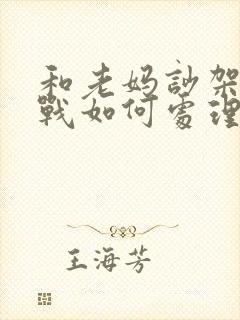 和老妈訬架冷
战如何处理
王海芳